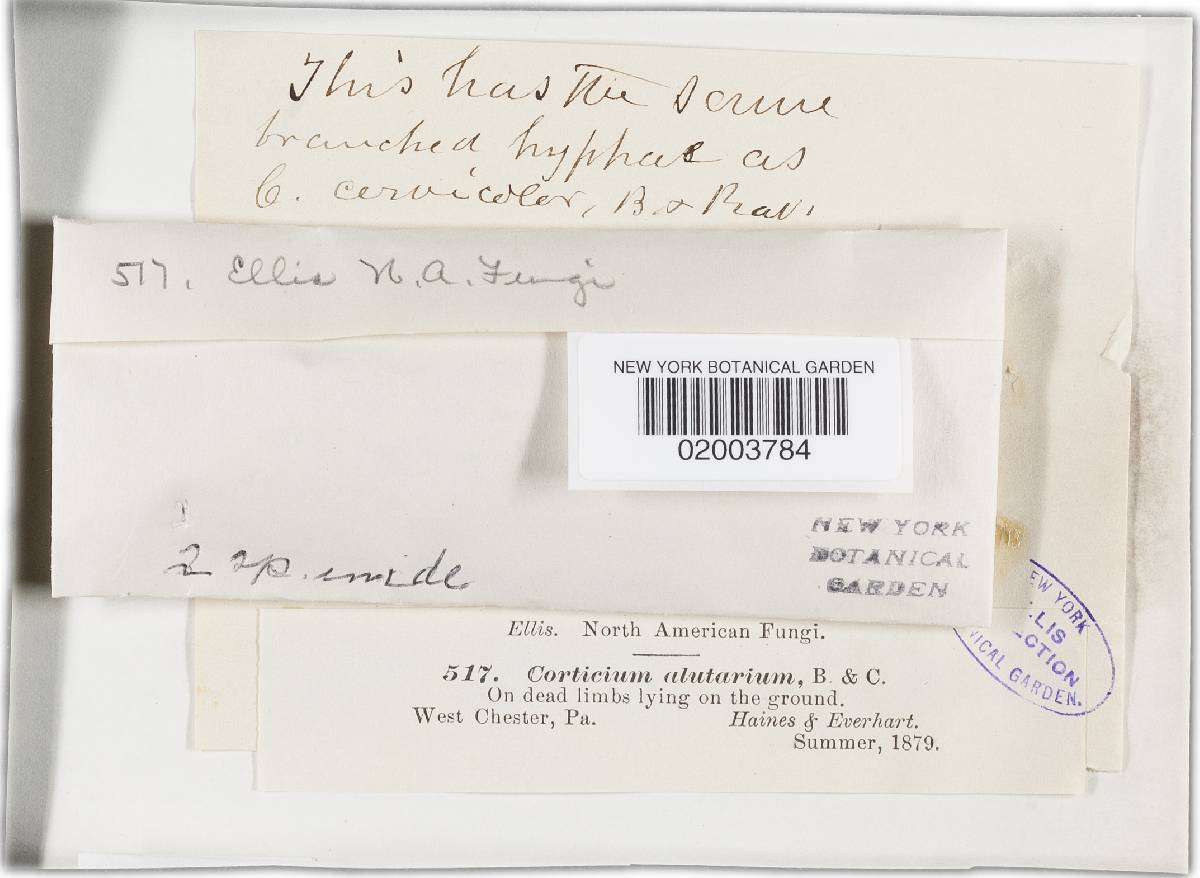 This has the same
branched hyphae as
C. cervicolor, B. & Rav.
517. Ellis N. A. Fungi
NEW YORK BOTANICAL GARDEN
02003784
2 sp. inside
NEW YORK
BOTANICAL
GARDEN
Ellis. North American Fungi.
517. Corticium alutarium, B. & C.
On dead limbs lying on the ground.
West Chester, Pa. Haines & Everhart.
Summer, 1879.
EW YORK
LLIS
ECTION
NICAL GARDEN.